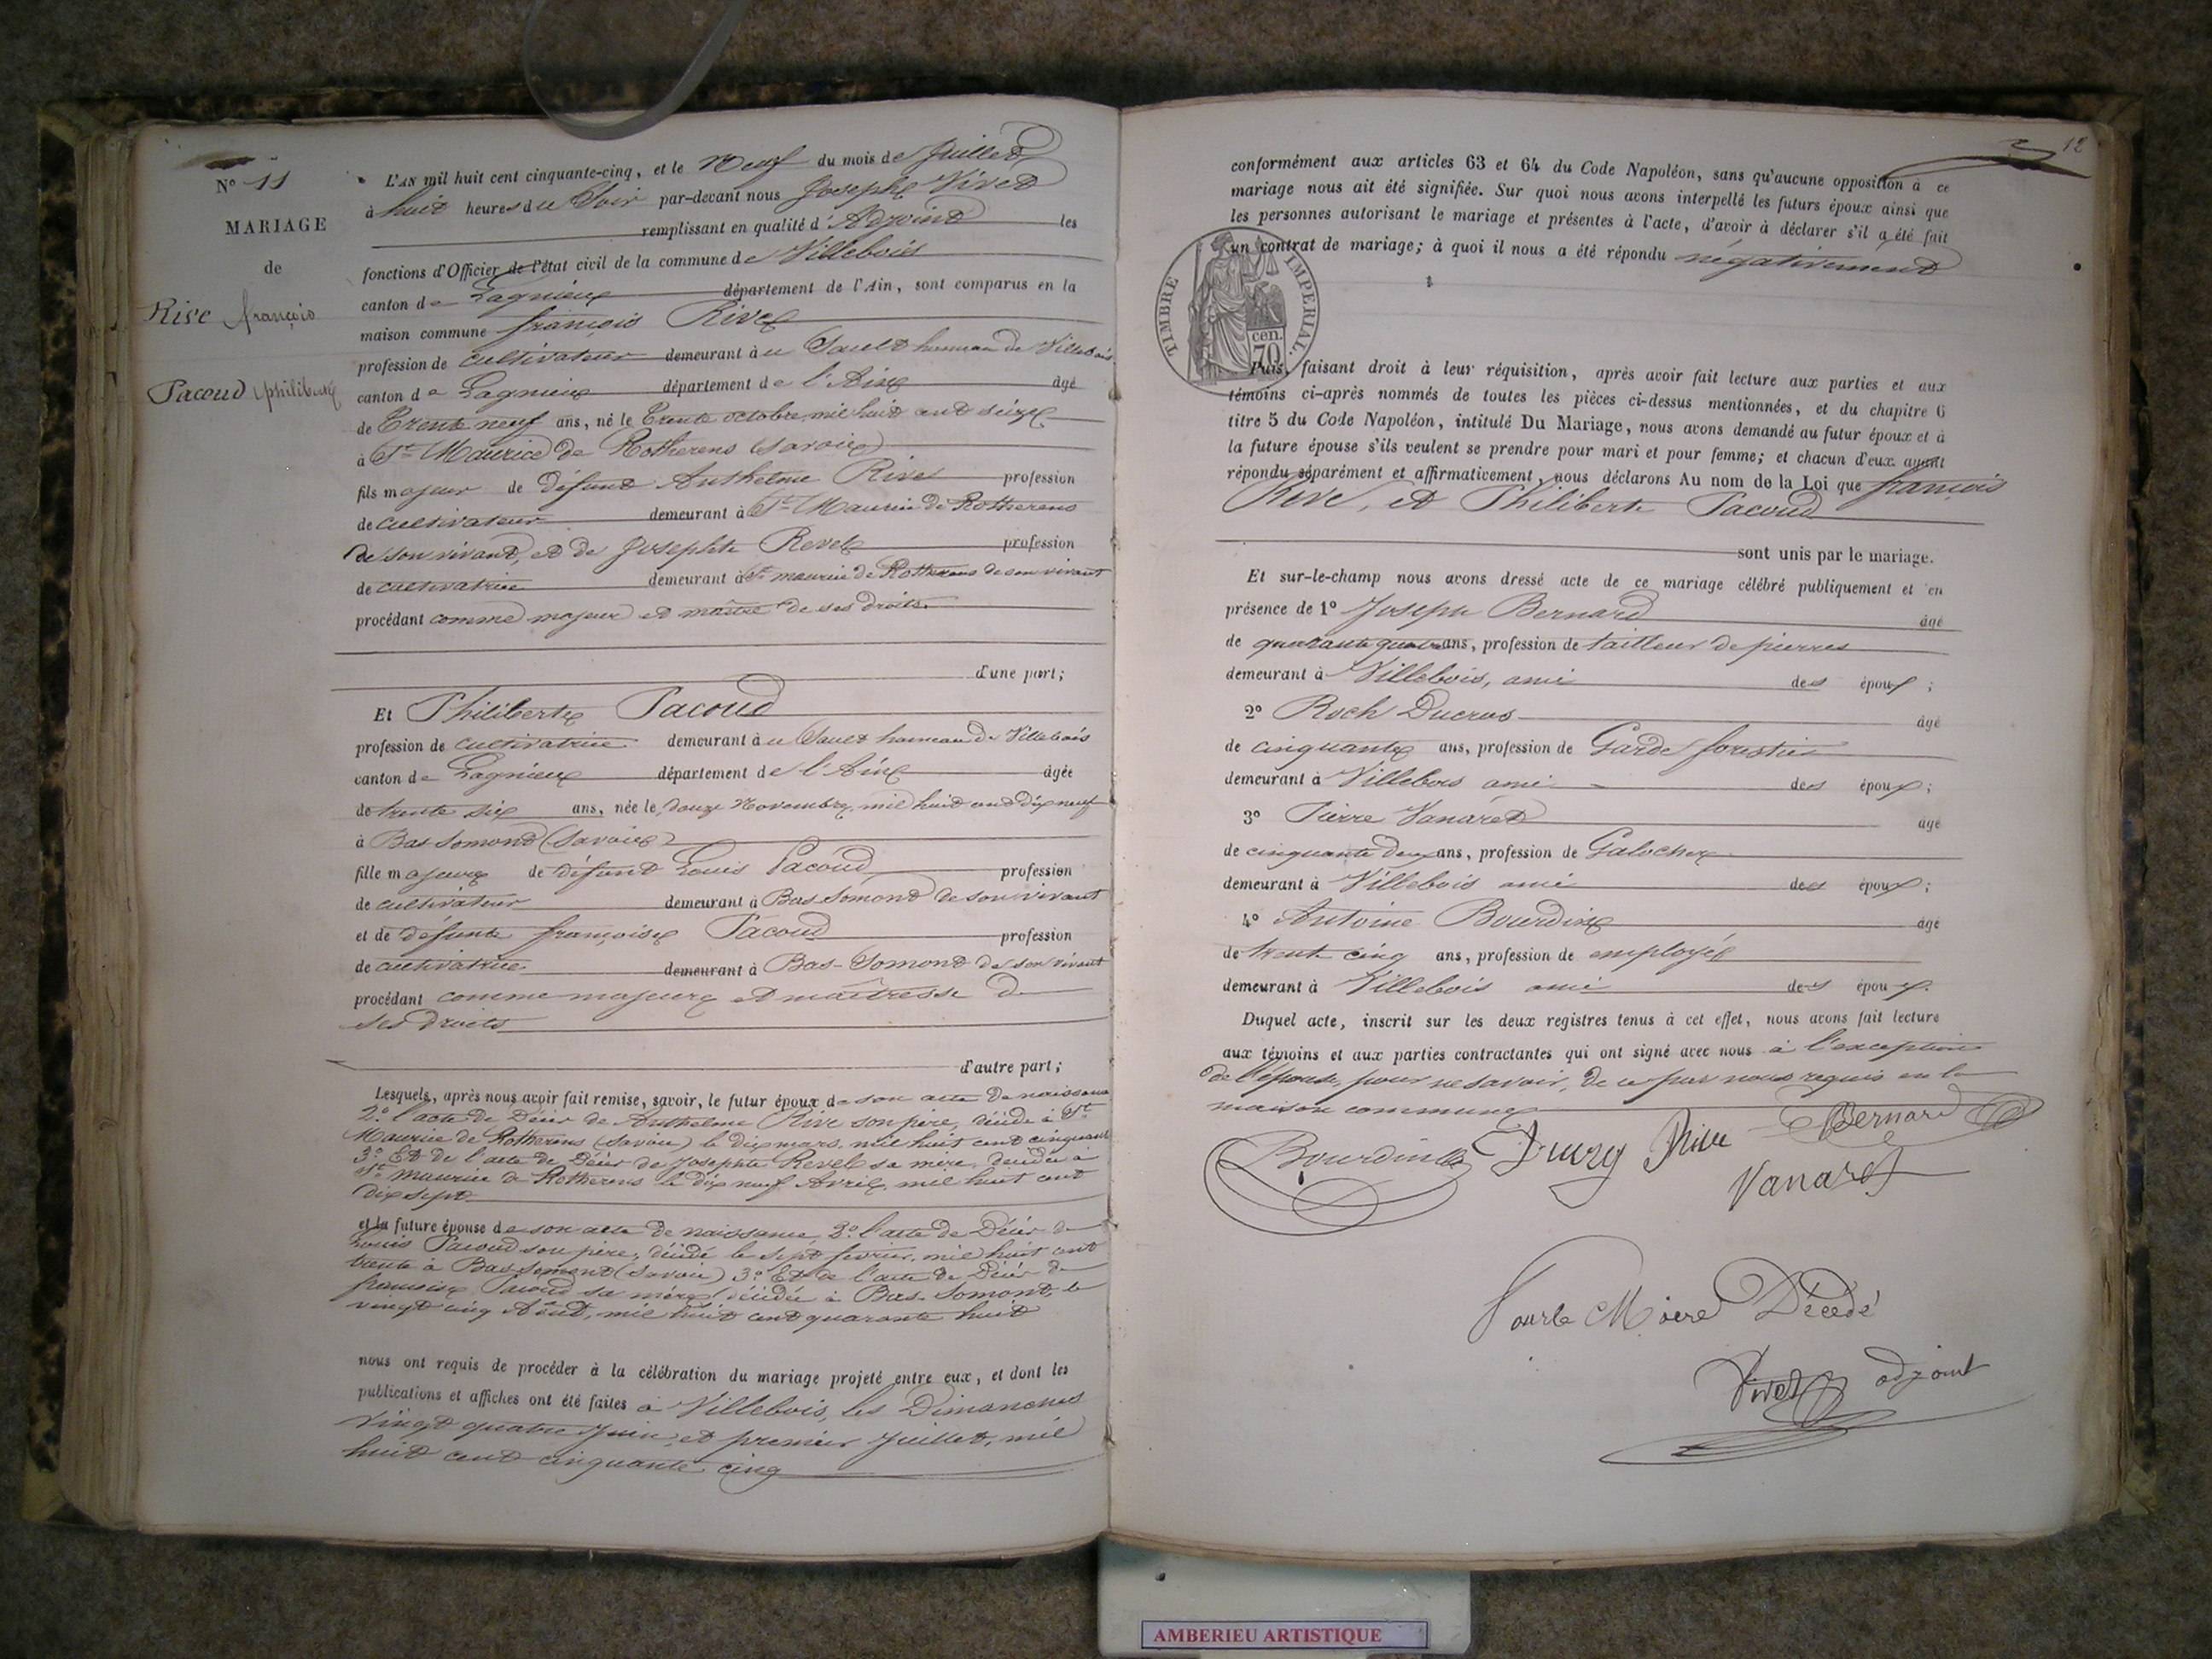 N° 11
MARIAGE
de
Rive françois
Pacoud philiberte
L'AN mil huit cent cinquante-cinq, et le Neuf du mois de Juillet
à huit heures du Soir par-devant nous Joseph Vivet
remplissant en qualité d'Adjoint les
fonctions d'Officier de l'état civil de la commune de Villebois
canton de Lagnieu département de l'Ain, sont comparus en la
maison commune françois Rive
profession de cultivateur demeurant à u Sault hameau de Villebois
canton de Lagnieu département de l'Ain âgé
de Trente neuf ans, né le Trente octobre mil huit cent seize
à St Maurice de Rotherens (Savoie)
fils majeur de défunt Anthelme Rive profession
de cultivateur demeurant à St Maurice de Rotherens
de son vivant, et de Josephte Revel profession
de cultivatrice demeurant à St maurice de Rotherens de son vivant
procédant comme majeur et maître de ses droits
d'une part;
Et Philiberte Pacoud
profession de cultivatrice demeurant à u Sault hameau de Villebois
canton de Lagnieu département de l'Ain âgée
de trente six ans, née le douze Novembre mil huit cent dix neuf
à Bas Somond (Savoie)
fille majeure de défunt Louis Pacoud profession
de cultivateur demeurant à Bas Somond de son vivant
et de défunte françoise Pacoud profession
de cultivatrice demeurant à Bas-Somond de son vivant
procédant comme majeure et maîtresse de
ses droits
d'autre part;
Lesquels, après nous avoir fait remise, savoir, le futur époux de son acte de naissance
2° l'acte de Décès de Anthelme Rive son père, décédé à St
Maurice de Rotherens (Savoie) le dix mars mil huit cent cinquante
3° Et de l'acte de Décès de Josephte Revel sa mère, décédée à
St maurice de Rotherens le dix neuf Avril mil huit cent
dix sept
et la future épouse de son acte de naissance, 2° l'acte de Décès de
Louis Pacoud son père, décédé le sept fevrier mil huit cent
trente à Bas Somond (Savoie) 3° Et de l'acte de Décès de
françoise Pacoud sa mère décédée à Bas-Somond le
vingt cinq Août, mil huit cent quarante huit
nous ont requis de procéder à la célébration du mariage projeté entre eux, et dont les
publications et affiches ont été faites à Villebois, les Dimanches
vingt quatre Juin et premier Juillet, mil
huit cent cinquante cinq
12
conformément aux articles 63 et 64 du Code Napoléon, sans qu'aucune opposition à ce
mariage nous ait été signifiée. Sur quoi nous avons interpellé les futurs époux ainsi que
les personnes autorisant le mariage et présentes à l'acte, d'avoir à déclarer s'il a été fait
un contrat de mariage; à quoi il nous a été répondu négativement
TIMBRE IMPERIAL.
cen.
70
Puis, faisant droit à leur réquisition, après avoir fait lecture aux parties et aux
témoins ci-après nommés de toutes les pièces ci-dessus mentionnées, et du chapitre 6
titre 5 du Code Napoléon, intitulé Du Mariage, nous avons demandé au futur époux et à
la future épouse s'ils veulent se prendre pour mari et pour femme; et chacun d'eux ayant
répondu séparément et affirmativement, nous déclarons Au nom de la Loi que françois
Rive, et Philiberte Pacoud
sont unis par le mariage.
Et sur-le-champ nous avons dressé acte de ce mariage célébré publiquement et en
présence de 1° Joseph Bernard âgé
de quarante quatre ans, profession de tailleur de pierres
demeurant à Villebois, ami des époux;
2° Roch Ducros âgé
de cinquante ans, profession de Garde forestier
demeurant à Villebois ami des époux;
3° Pierre Vanaret âgé
de cinquante deux ans, profession de Galocher
demeurant à Villebois ami des époux;
4° Antoine Bourdin âgé
de trente cinq ans, profession de employé
demeurant à Villebois ami des époux.
Duquel acte, inscrit sur les deux registres tenus à cet effet, nous avons fait lecture
aux témoins et aux parties contractantes qui ont signé avec nous à l'exception
de l'épouse, pour ne savoir, de ce par nous requis en la
maison commune
Bourdin Rive Bernard
Vanaret
Pour le Maire Décédé
Vivet adjoint
AMBERIEU ARTISTIQUE